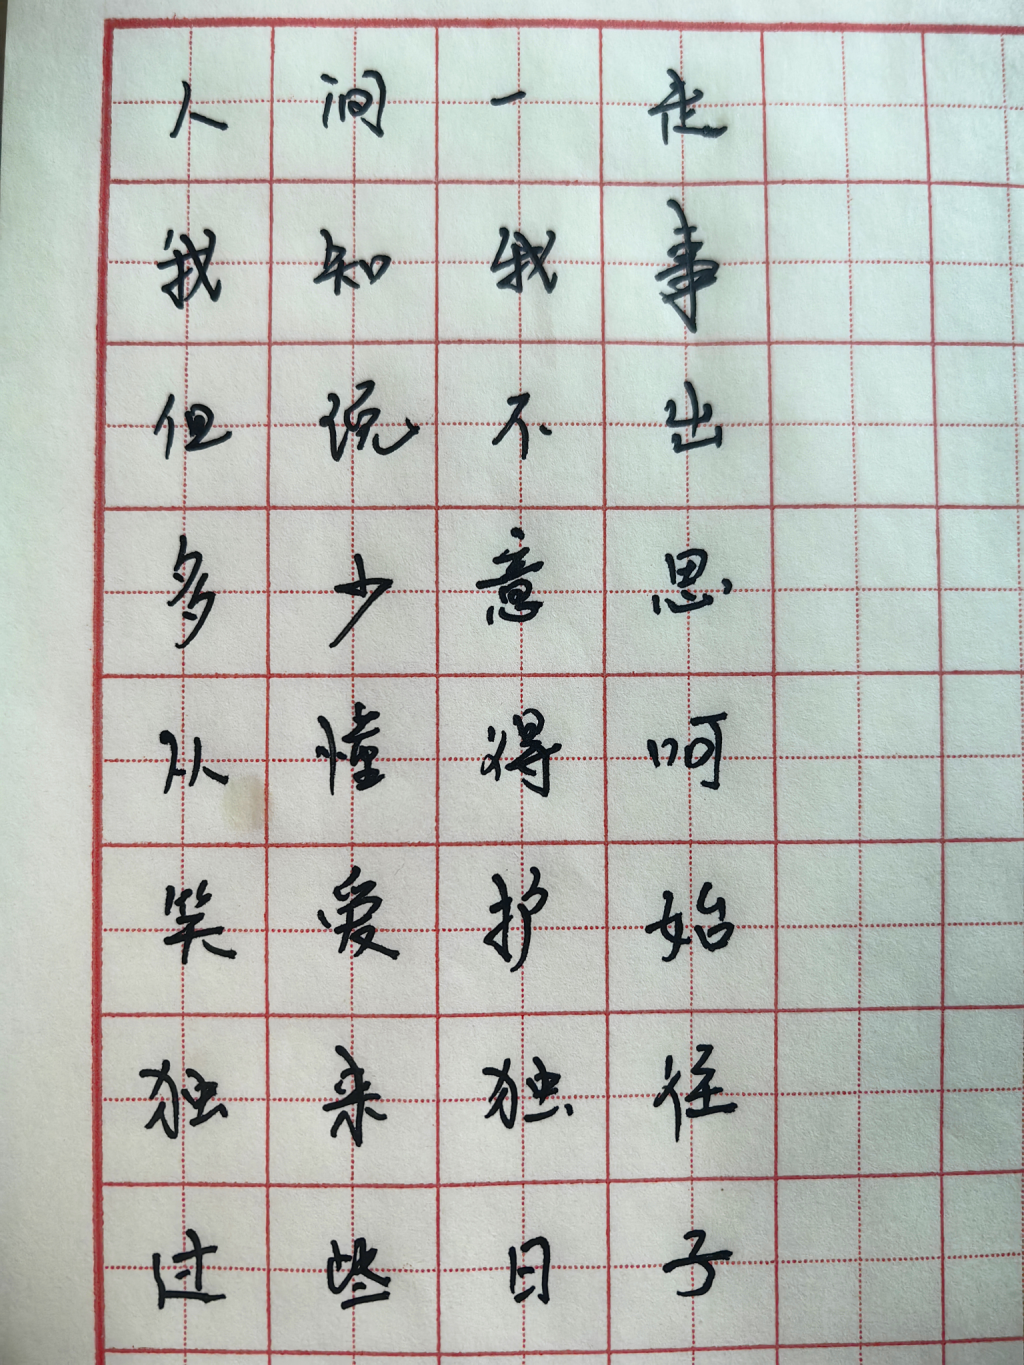 人间一走
我知我事
但说不出
多少意思
从懂得呵
笑爱护始
独来独往
过些日子